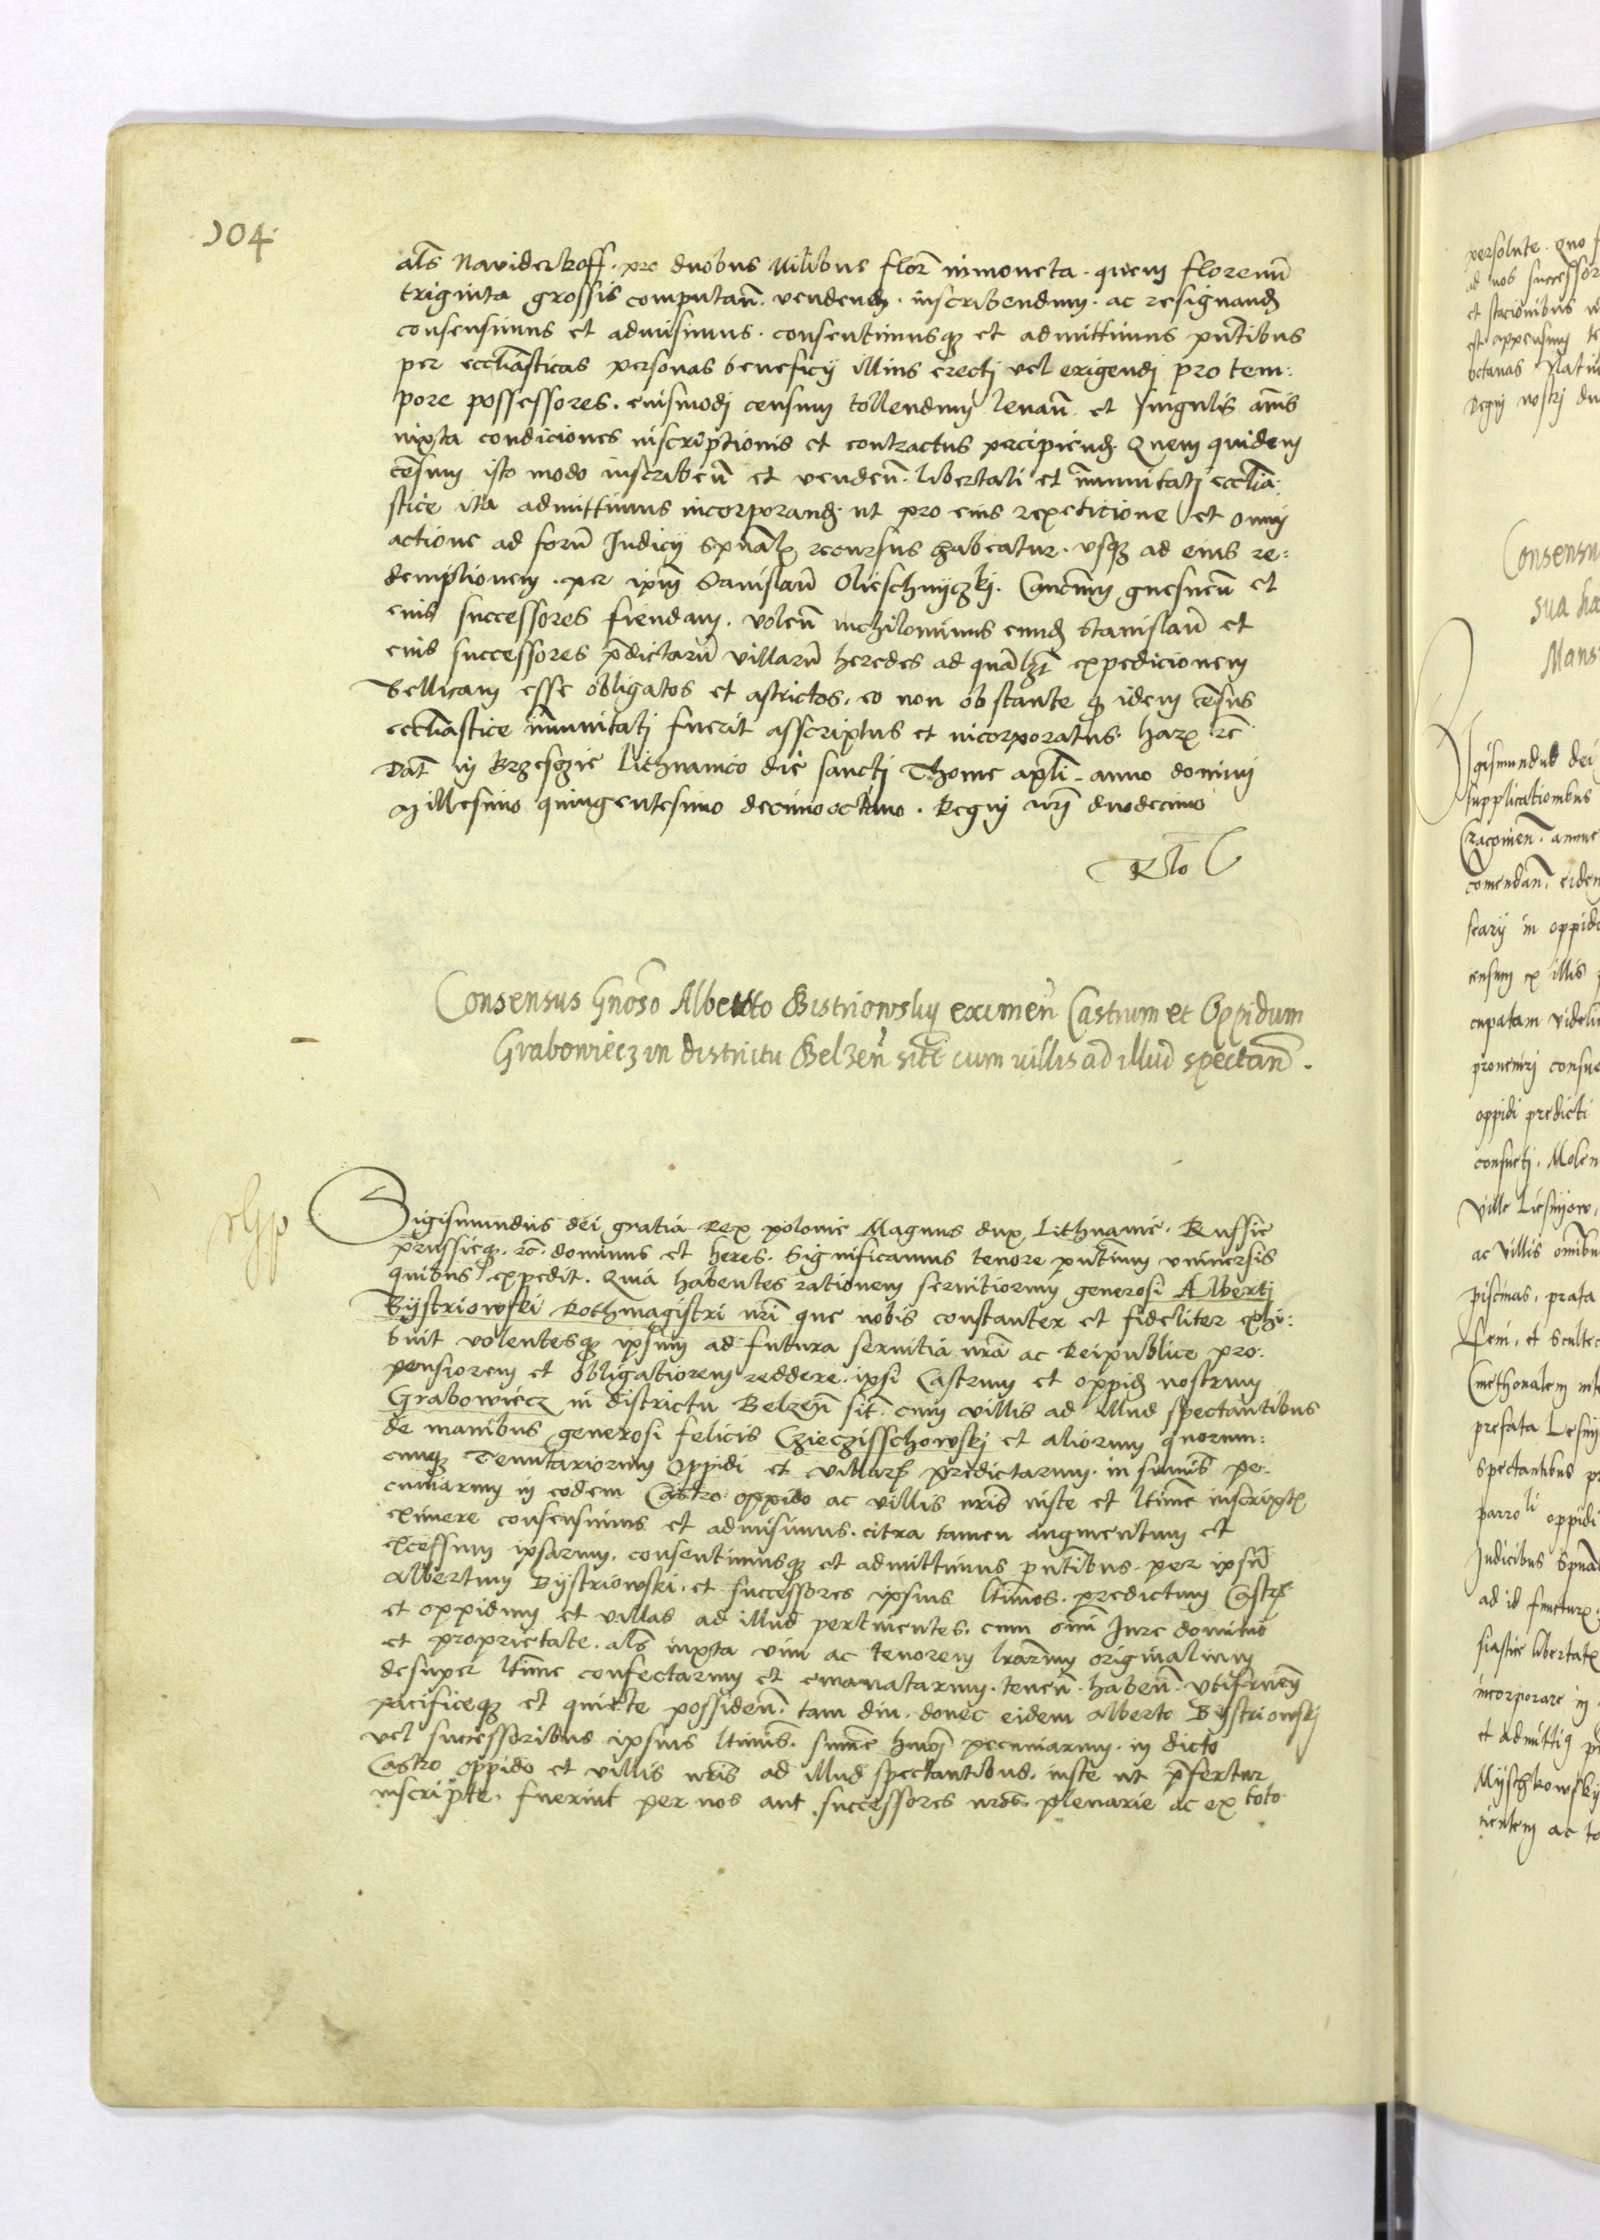 104
als Naviderkoff. pro duobus milibus flor in moneta. quem florenũ
triginta grossis computan̄. vendendum. inscribendum. ac resignand
consensimus et admisimus. consentimusq3 et admittimus pn̄tibus
per ecclīasticas personas beneficij illius erectj vel erigendj pro tem:
pore possessores. eiusmodj censum tollendum levan̄ et singulis annis
iuxta condiciones inscriptionis et contractus percipiend. Quem quidem
cēsum isto modo inscriben̄ et venden̄. libertati et īmunitatj ecclīa:
stice ita admittimus incorporand. ut pro eius repeticione et omnj
actione ad forū Iudicij spūalis recursus habeatur. usq3 ad eius re:
demptionem. per ipm̄ Stanislaū Olieschnyczkj. Canonicum gnesnen̄ et
eius successores fiendam. volen̄ nichilominus eund Stanislaū et
eius successores p̄dictarū villarū heredes ad quāl3t expedicionem
bellicam esse obligatos et astrictos. eo non obstante q idem cēsus
ecclīastice īmunitatj fuerit asscriptus et incorporatus. harum rc̄
Dat̄ in Brzesczie Lithuanico die sanctj Thome apl̄i. anno dominj
Millesimo quingentesimo decimooctavo. Regnj nr̄j duodecimo
Rlo
Consensus Gnoso Alberto Bistriowskij eximen̄ Castrum et Oppidum
Grabowiecz in districtu Belzen̄ sit̄ cum villis ad illud spectan̄.
Sigismundus dei gratia Rex polonie Magnus dux Lithuanie. Russie
prussieq3. rc̄. dominus et heres. Significamus tenore pn̄tium universis
quibus expedit. Quia habentes rationem servitiorum generosi Albertj
Bystriowski Rothmagistri nr̄i que nobis constanter et fideliter exhi:
buit volentesq3 ipsum ad futura servitia nr̄a ac Reipublice pro:
pensiorem et obligatiorem reddere. ipsi Castrum et oppid nostrum
Grabowiecz in districtu Belzen̄ sit̄. cum villis ad illud spectantibus
de manibus generosi felicis Czieczisschowskj et aliorum quorum:
cumq3 Tenutariorum oppidi et villarum predictarum. in sum̄is pe:
cuniarum in eodem Castro oppido ac villis nr̄is iuste et ltīme inscriptis
eximere consensimus et admisimus. citra tamen augmentum et
excessum ipsarum. consentimusq3 et admittimus pn̄tibus. per ipsū
Albertum Bystriowski. et successores ipsius ltīmos. predictum Castr
et oppidum et villas ad illud pertinentes. cum om̄i Iure dominio
et proprietate. als iuxta vim ac tenorem lr̄arum originalium
desuper ltīme confectarum et emanatarum. tenen̄. haben̄. utifruen̄
pacificeq3 et quiete possiden̄. tam diu. donec eidem Alberto Bystriowskj
vel successoribus ipsius ltīmis. sum̄e hmōi pecuniarum. in dicto
Castro oppido et villis nr̄is ad illud spectantibus. iuste ut p̄fertur
inscripte. fuerint per nos aut successores nr̄os plenarie ac ex toto
persolute. quo
ad nos successor
et stacionibus
est appensum
octavas Nativ
Regni nostrj du
Consensu
sua ha
Mans
Sigismundus dei
supplicationibus
Cracovien̄.
comendan̄. eiden
in oppido
censum ex illis
cupatam
provenirj consue
oppidi predicti
consuetj.
ville
ac villis omnibu
piscinas. prata
et scultec
Cmethonalem
prefata
spectantibus
oppidi
Iudicibus spūal
ad id
siastice libertatis
incorporare in
et admittiq
Myschkowskij
ac to